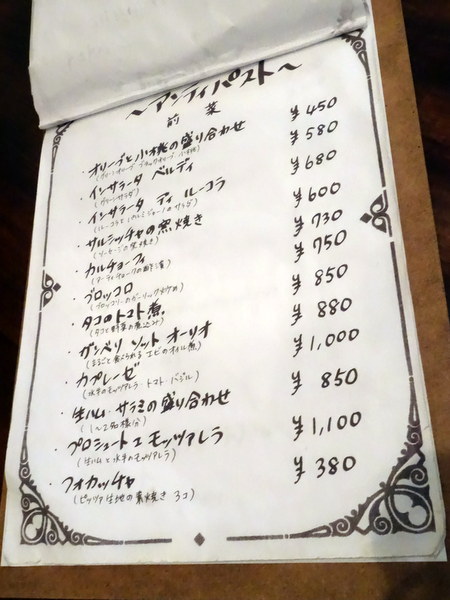 ～アンティパスト～
前菜
・オリーブと小桃の盛り合わせ ¥450
(グリーンオリーブ ブラックオリーブ 小桃)
・インサラータ ベルディ ¥580
(グリーンサラダ)
・インサラータ ディ ルーコラ ¥680
(ルーコラとパルミジャーノのサラダ)
・サルシッチャの窯焼き ¥600
(ソーセージの窯焼き)
・カルチョーフィ ¥730
(アーティチョークの酢漬)
・ブロッコロ ¥750
(ブロッコリーのガーリック炒め)
・タコのトマト煮 ¥850
(タコと野菜の煮込み)
・ガンベリ ソット オーリオ ¥880
(まるごと食べられるエビのオイル煮)
・カプレーゼ ¥1,000
(水牛のモッツァレラ・トマト・バジル)
・生ハム・サラミの盛り合わせ ¥850
(1〜2名様分)
・プロシュート エ モッツァレラ ¥1,100
(生ハムと水牛のモッツァレラ)
・フォカッチャ ¥380
(ピッツァ生地の素焼き 3コ)